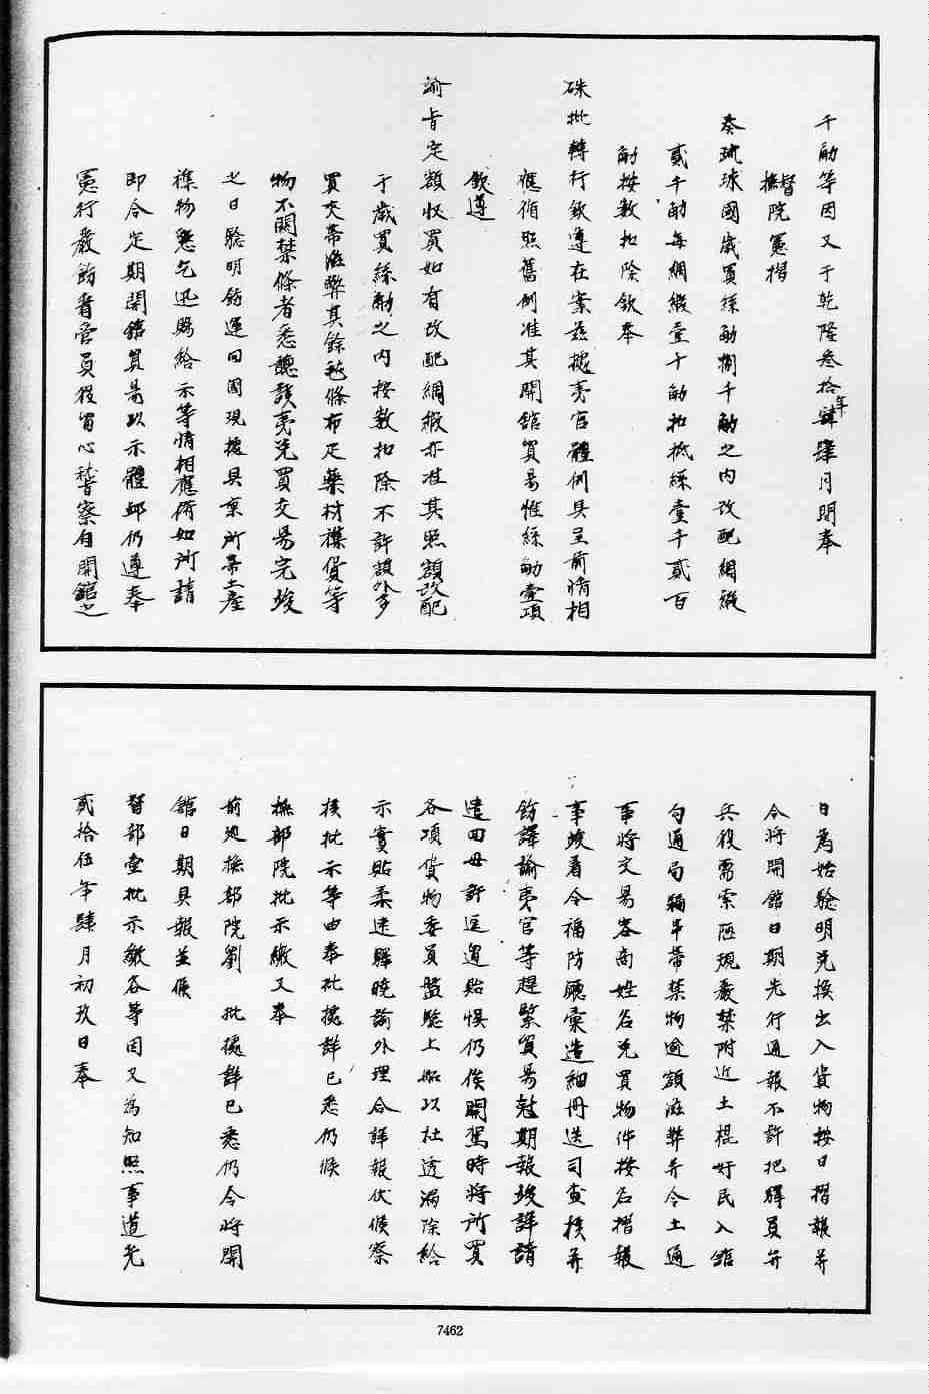 千觔等因又于乾隆叁拾肆年肆月閒奉
督撫院憲摺
奏琉球國歲買絲觔捌千觔之內改配綢緞
貳千觔每綢緞壹千觔扣抵絲壹千貳百
觔按數扣除欽奉
硃批轉行欽遵在案茲據夷官體例具呈前情相
應循照舊例准其開館貿易惟絲觔壹項
欽遵
諭旨定額收買如有改配綢緞亦准其照額改配
于歲買絲觔之內按數扣除不許額外多
買夾帶滋弊其餘毡條布疋藥材襍貨等
物不關禁條者悉聽該夷兌買交易完竣
之日驗明飭運回國現據具稟所帶土產
襍物懇乞迅賜給示等情相應俯如所請
即令定期開館貿易以示體卹仍遵奉
憲行嚴飭看管員役留心稽察自開館之
日為始驗明兌換出入貨物按日摺報并
令將開館日期先行通報不許把驛員弁
兵役需索陋規嚴禁附近土棍奸民入館
勾通局騙串帶禁物逾額滋弊并令土通
事將交易客商姓名兌買物件按名摺報
事竣着令福防廳彙造細冊送司查核并
飭譯諭夷官等趕緊貿易尅期報竣詳請
遣回毋許逗遛貽悞仍俟開駕時將所買
各項貨物委員盤驗上船以杜透漏除給
示實貼柔遠驛曉諭外理合詳報伏候察
核批示等由奉批據詳已悉仍候
撫部院批示繳又奉
前廵撫部院劉　批據詳已悉仍令將開
館日期具報並候
督部堂批示繳各等因又為知照事道光
貳拾伍年肆月初玖日奉
7462